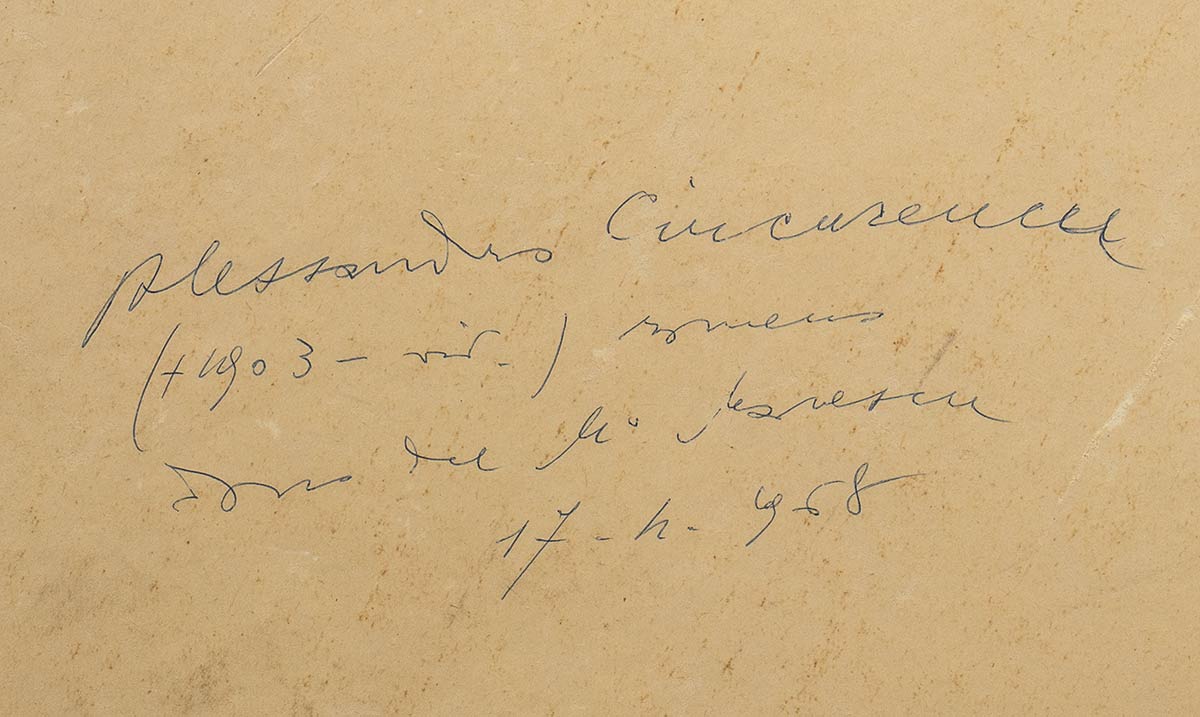 Alessandro Ciucurencu
(+ 1903 – viv. – ) romeno
dono del M° 
17 – – 1968